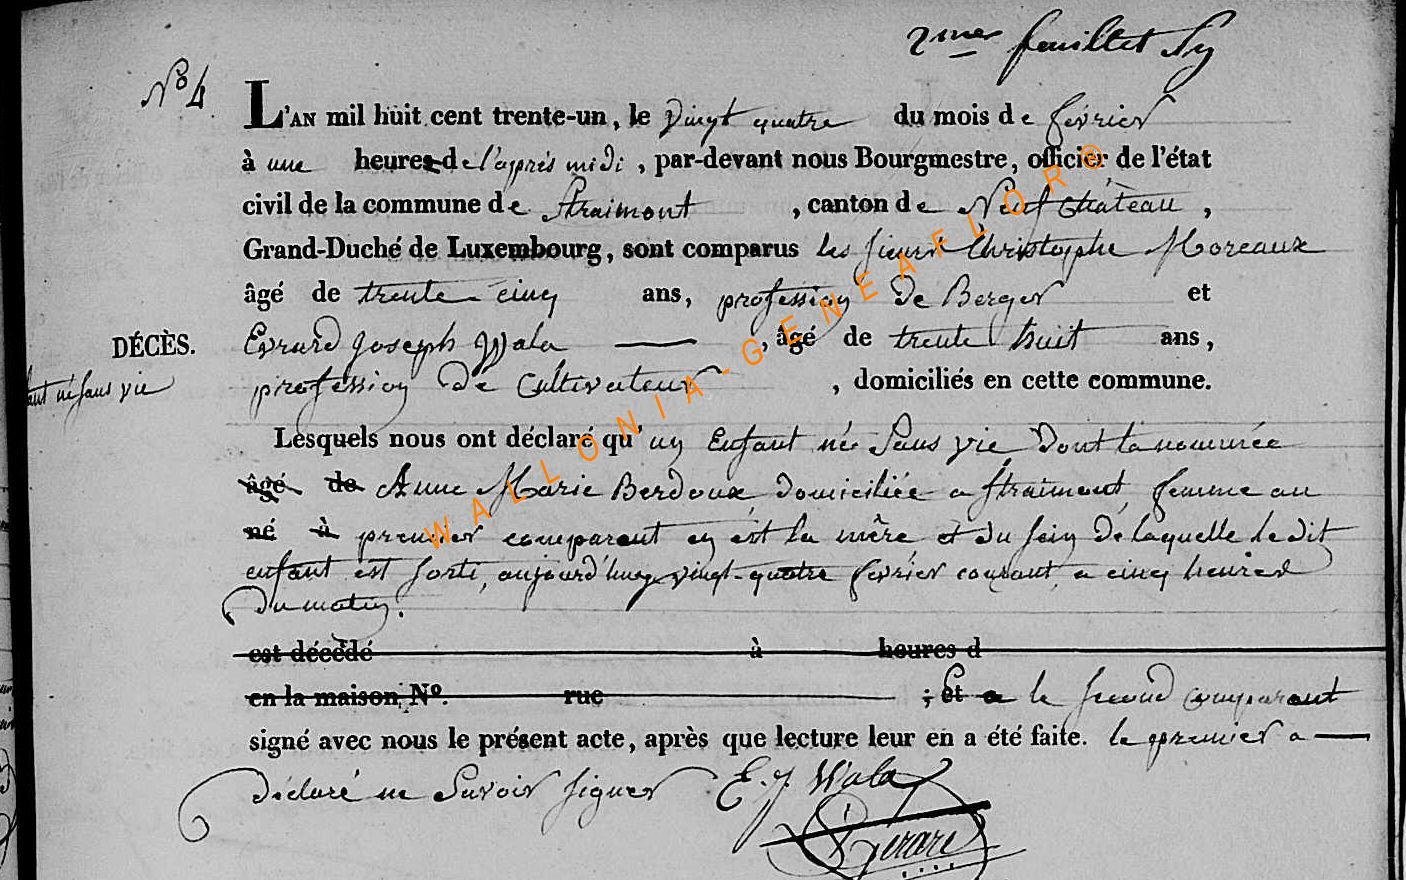 2me feuillet
No 4
L'AN mil huit cent trente-un, le Vingt quatre du mois de février
à une heures de l'après midi, par-devant nous Bourgmestre, officier de l'état
civil de la commune de Straimont, canton de Neufchâteau,
Grand-Duché de Luxembourg, sont comparus les sieurs Christophe Moreaux
âgé de trente cinq ans, profession de Berger et
DÉCÈS.
Evrard Joseph Wala, âgé de trente huit ans,
né sans vie
profession de Cultivateur, domiciliés en cette commune.
Lesquels nous ont déclaré qu'un Enfant né Sans vie Dont la nommée
âgé de Anne Marie Berdoux domiciliée a straimont femme au
né à premier comparant en est la mère et du sein de laquelle le dit
enfant est sorti, aujourd'huy vingt-quatre février courant a cinq heures
du matin.
est décédé à heures d
en la maison No. rue ; Et a le second comparant
signé avec nous le présent acte, après que lecture leur en a été faite. le premier a
déclaré ne Savoir signer E. J. Wala
Gérard
WALLONIA-GENEAFLOR®